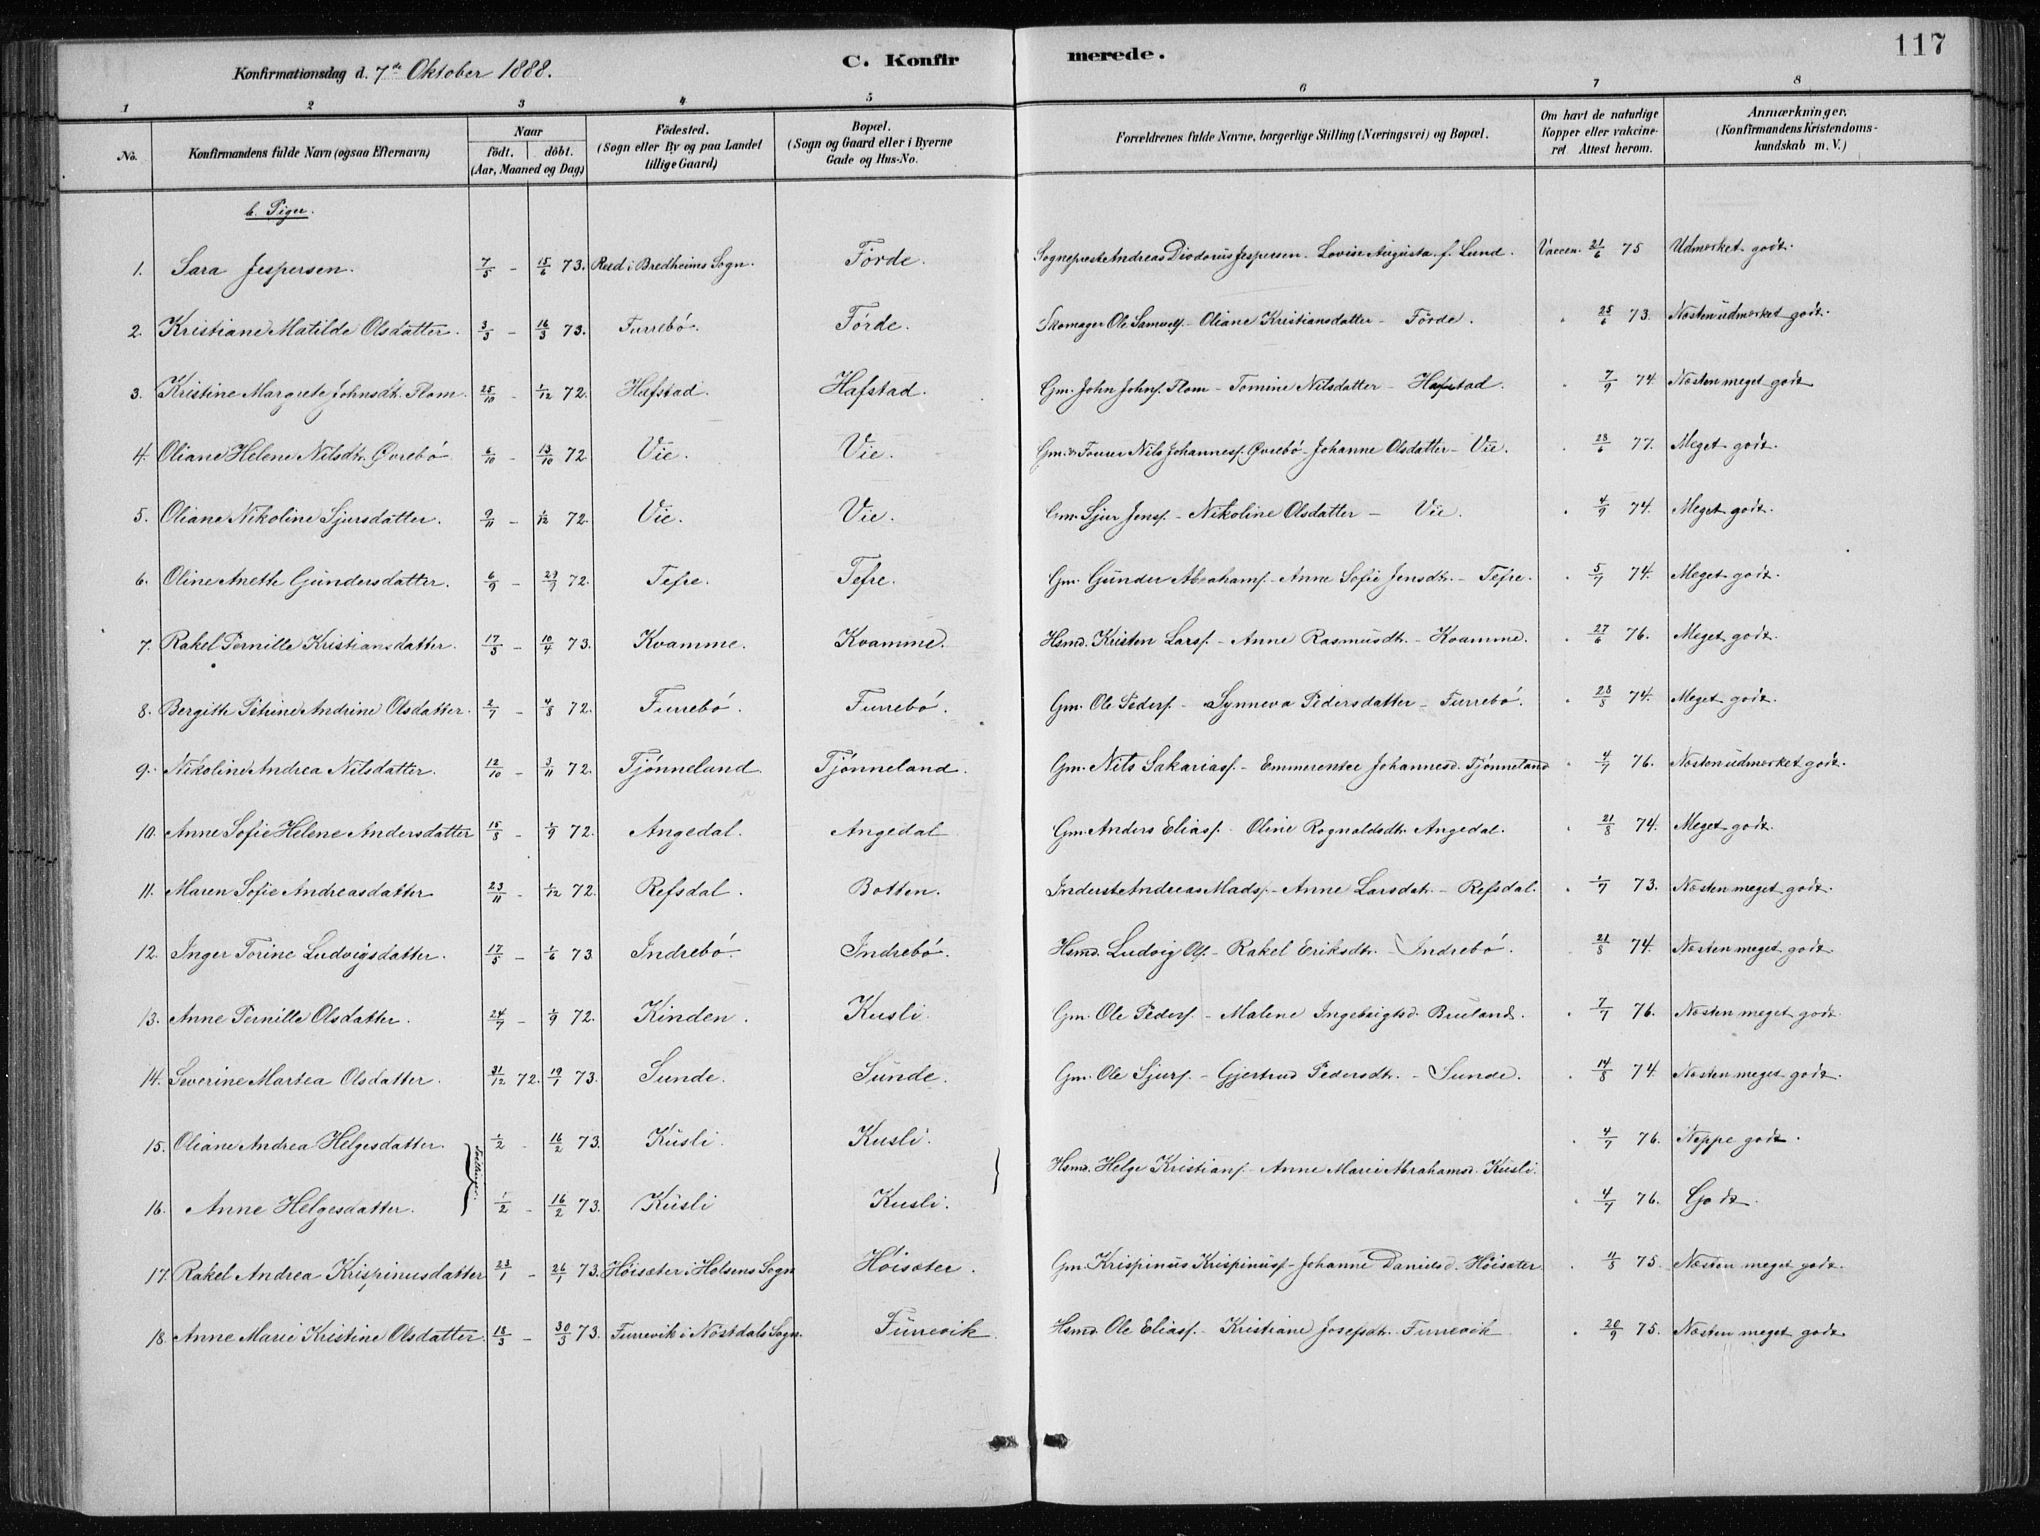 117
Konfirmationsdag d. 7de Oktober 1888. C. Konfirmerede.
1 2 3 4 5 6 7 8
No. Konfirmandens fulde Navn (ogsaa Efternavn) Naar födt. döbt. (Aar, Maaned og Dag) Födested. (Sogn eller By og paa Landet tillige Gaard) Bopæl. (Sogn og Gaard eller i Byerne Gade og Hus-No. Forældrenes fulde Navne, borgerlige Stilling (Næringsvei) og Bopæl. Om havt de naturlige Kopper eller vakcineret Attest herom. Anmærkninger. (Konfirmandens Kristendomskundskab m. V.)
b. Piger.
1. Sara Jespersen. 7/5 - 15/6 73. Reed i Bredheims Sogn. Förde. Sognepræst Andreas Diodorus Jespersen. Lovise Augusta f. Lund. Vaccen. 21/6 75 Udmærket godt.
2. Kristiane Matilde Olsdatter. 3/3 - 16/3 73. Furrebö. Förde. Skomager Ole Samuels. - Oliane Kristiansdatter - Förde. " 25/6 73. Næsten udmærket godt.
3. Kristine Margrete Johnsdt. Flom. 25/10 - 1/12 72. Hafstad. Hafstad. Gm. John Johns. Flom - Tomine Nilsdatter - Hafstad. " 7/9 74. Næsten meget godt
4. Oliane Helene Nilsdtr. Øvrebö 6/10 - 13/10 72 Vie. Vie. Gm. & Fourer Nils Johannes. Øvrebö - Johanne Olsdatter - Vie. " 28/6 77. Meget godt.
5. Oliane Nikoline Sjursdatter. 9/11 - 1/12 72. Vie. Vie. Gm. Sjur Jens. - Nikoline Olsdatter - Vie. " 4/9 74. Meget godt.
6. Oline Anette Gundersdatter. 6/9 - 29/9 72. Tefre. Tefre. Gm. Gunder Abrahams. - Anne Sofie Jensdtr. - Tefre. " 5/7 74. Meget godt.
7. Rakel Pernille Kristiansdatter. 17/3 - 10/4 73. Kvamme. Kvamme. Hsmd. Kristen Lars. - Anne Rasmusdtr. - Kvamme. " 27/6 76. Meget godt.
8. Bergitte Petrine Andrine Olsdatter. 2/7 - 4/8 72. Furrebö. Furrebö. Gm. Ole Peders. - Synneva Pedersdatter - Furrebö. " 28/8 74. Meget godt.
9. Nikoline Andrea Nilsdatter. 12/10 - 3/11 72. Tjønneland. Tjønneland. Gm. Nils Sakarias. - Emmerentse Johannesd. Tjønneland " 4/7 76. Næsten udmærket godt.
10. Anne Sofie Helene Andersdatter 15/8 - 1/9 72. Angedal. Angedal Gm. Anders Elias. - Oline Rognaldsdtr. Angedal. " 21/8 74. Meget godt.
11. Maren Sofie Andreasdatter 23/11 - 1/12 72. Refsdal. Botten. Inderste Andreas Mads. - Anne Larsdtr. - Refsdal. " 1/7 73. Næsten meget godt.
12. Inger Torine Ludvigsdatter. 17/5 - 1/6 73 Indrebö. Indrebö. Hsmd. Ludvig Ols. - Rakel Eriksdtr. - Indrebö. " 21/8 74. Næsten meget godt.
13. Anne Pernille Olsdatter. 24/7 - 1/9 72. Kinden. Kusli. Gm. Ole Peders. - Malene Ingebrigtsd. Bruland. " 7/7 76. Næsten meget godt
14. Severine Martea Olsdatter. 31/12 72. 19/1 73. Sunde. Sunde. Gm. Ole Sjurs. - Gjertrud Pedersdtr. - Sunde. " 14/8 74. Næsten meget godt.
15. Oliane Andrea Helgesdatter. 1/2 - 16/2 73. Kusli. Kusli. " 4/7 76. Neppe godt.
Tvillinger. Hsmd. Helge Kristians. - Anne Marie Abrahamsd. Kusli.
16. Anne Helgesdatter. 1/2 - 16/2 73. Kusli Kusli. " 4/7 76. Godt.
17. Rakel Andrea Krispinusdatter 23/1 - 26/1 73. Höisæter i Holsens Sogn Höisæter. Gm. Krispinus Krispinus. - Johanne Danielsd. Höisæter. " 11/8 75. Næsten meget godt.
18. Anne Marie Kristine Olsdatter. 18/3 - 30/3 73. Furrevik i Nöstdals Sogn. Furrevik Hsmd. Ole Elias. - Kristiane Josefsdtr. Furrevik " 20/9 75. Næsten meget godt